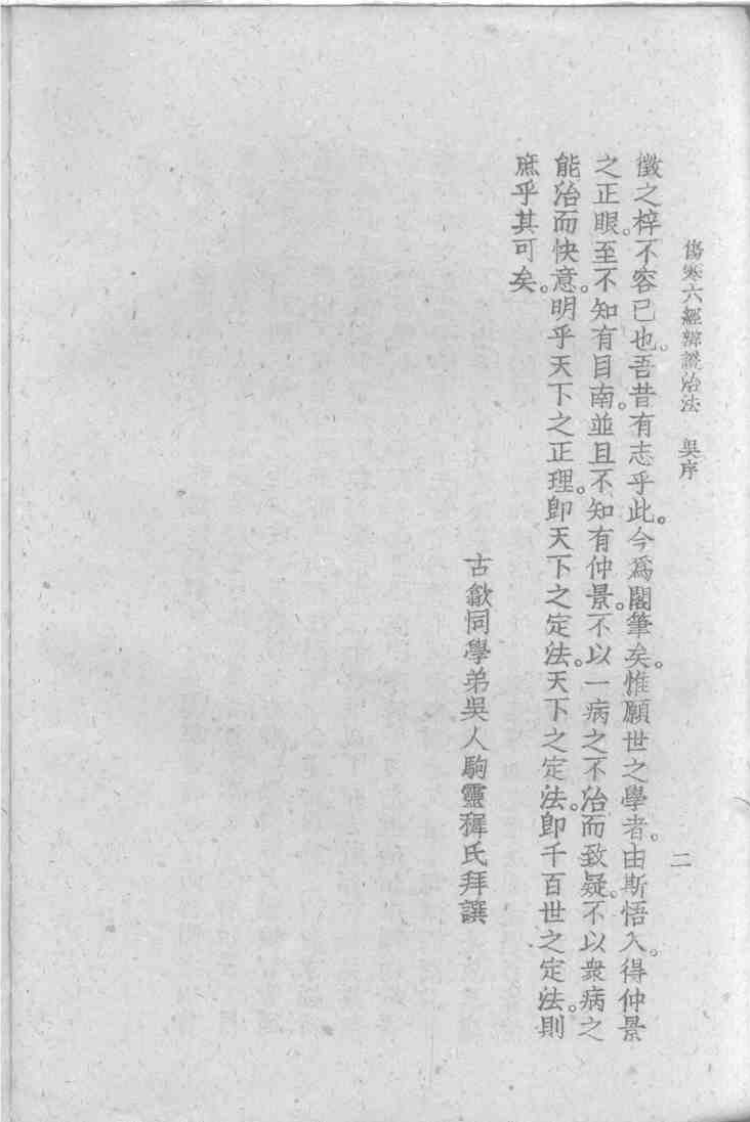 傷寒六經辯證治法　吳序　二
徵之梓。不容已也。吾昔有志乎此。今爲閣筆矣。惟願世之學者。由斯悟入。得仲景
之正眼。至不知有目南。並且不知有仲景。不以一病之不治而致疑。不以衆病之
能治而快意。明乎天下之正理。卽天下之定法。天下之定法。卽千百世之定法。則
庶乎其可矣。
古歙同學弟吳人駒靈穉氏拜譔